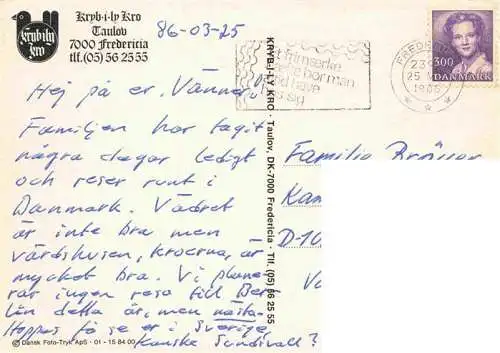 Kryb-i-ly Kro
Taulov
7000 Fredericia
tlf. (05) 56 25 55
kryb-i-ly
kro
86-03-25
Hej på er, Vänner!
Familjen har tagit
några dagar ledigt
och reser runt i
Danmark. Vädret
är inte bra men
värdshusen, kroerna, är
mycket bra. Vi plane-
rar ingen resa till Ber-
lin detta år, men nästa.
Hoppas få se er i Sverige,
kanske Sundsvall?
© Dansk Foto-Tryk ApS · 01 - 15 84 00
KRYB-I-LY KRO · Taulov, DK-7000 Fredericia · Tlf. (05) 56 25 55
frimærke
bør man
have
på sig
FREDERICIA
25
1986
3.00
DANMARK
Familie
D-10